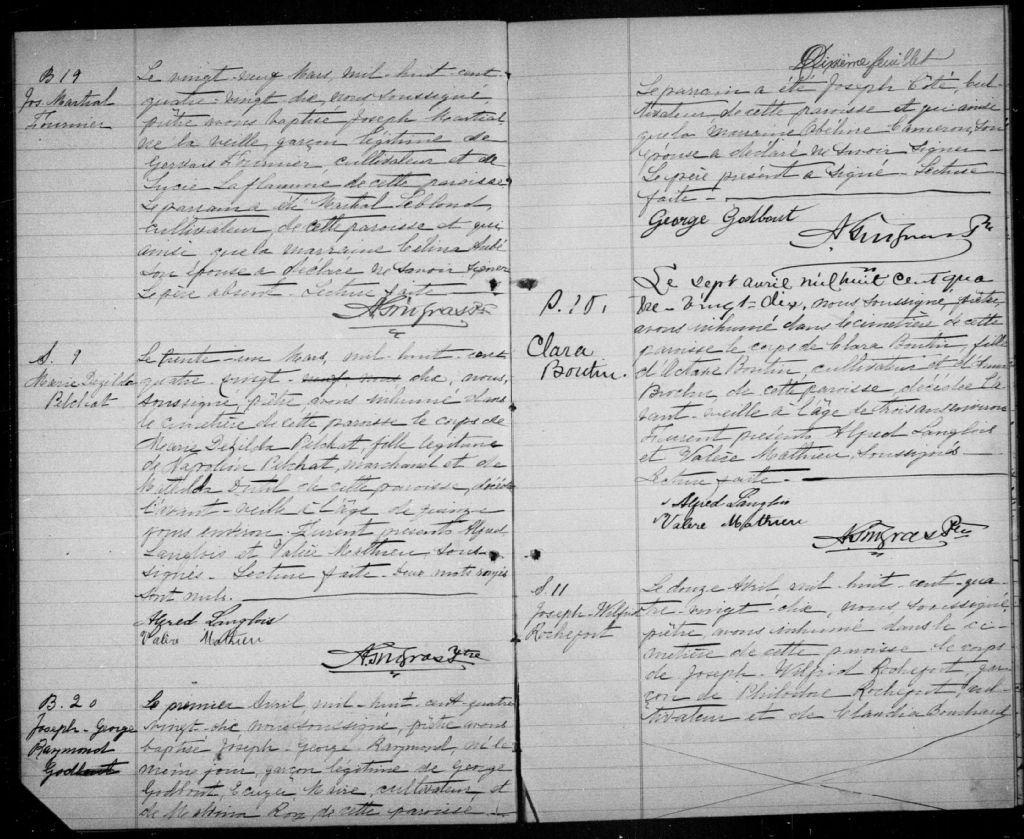 B 19
Jos. Martial
Fournier
Le vingt-neuf Mars, mil-huit-cent-
quatre-vingt-dix, nous soussigné,
prêtre avons baptisé Joseph Martial
né la veille, garçon légitime de
Gervais Fournier, cultivateur et de
Lucie Laflamme de cette paroisse.
Le parrain a été Martial Leblond,
cultivateur de cette paroisse et qui
ainsi que la marraine Célina Aubé
son épouse a déclaré ne savoir signer
Le père absent. Lecture faite
A Gingras Ptre
S. 9
Marie Dezilda
Pelchat
Le trente-un Mars, mil-huit-cent
quatre-vingt- dix, nous,
soussigné, prêtre, avons inhumé dans
le cimetière de cette paroisse le corps de
Marie Dezilda Pelchat, fille légitime
de Napoléon Pelchat, marchand et de
Mathilda de cette paroisse, décédée
l'avant-veille à l'âge de quinze
jours environ. Furent présents Alfred
Langlois et Valère Mathieu sous-
signés. Lecture faite. Deux mots rayés
sont nuls.
Alfred Langlois
Valère Mathieu
A Gingras Ptre
B. 20
Joseph-George
Raymond
Godbout
Le premier Avril, mil-huit-cent-quatre
vingt-dix nous soussigné, prêtre avons
baptisé Joseph-George-Raymond, né le
même jour, garçon légitime de George
Godbout, Ecuyer Maire, cultivateur, et
de Malvina Roy, de cette paroisse.
Dixième feuillet
Le parrain a été Joseph Côté, cul-
tivateur de cette paroisse et qui ainsi
que la marraine Obéline Cameron, son
épouse a déclaré ne savoir signer
Le père présent a signé. Lecture
faite.
George Godbout
A Gingras Ptre
S. 10.
Clara
Boutin.
Le sept avril mil huit cent qua
tre-vingt-dix, nous soussigné, prêtre,
avons inhumé dans le cimetière de cette
paroisse le corps de Clara Boutin, fille
d'Octave Boutin, cultivateur et d'
Brochu de cette paroisse, décédée l'a
vant-veille à l'âge de trois ans environ
Furent présents Alfred Langlois
et Valère Mathieu, soussignés.
Lecture faite.
Alfred Langlois
Valère Mathieu
A Gingras Ptre
S. 11
Joseph-Wilfrid
Rochefort
Le douze Avril, mil-huit-cent-qua
tre-vingt-dix, nous, soussigné,
prêtre, avons inhumé dans le ci-
metière de cette paroisse le corps
de Joseph-Wilfrid Rochefort, gar-
çon de Philidore Rochefort, cul-
tivateur et de Claudia Bouchard